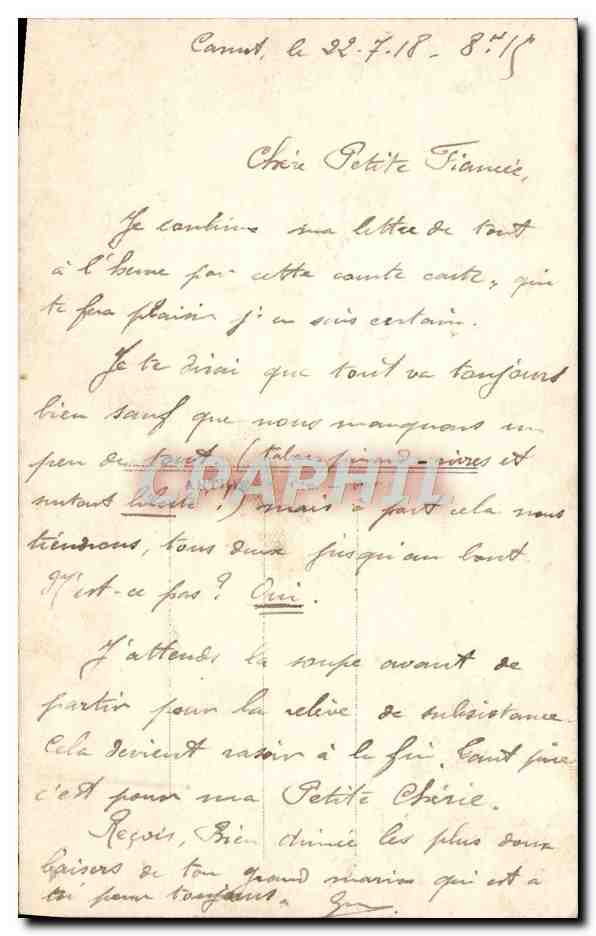 le 22-7-18 - 8h15
Chère Petite Fiancée,
Je continue ma lettre de tout
à l'heure par cette courte carte, qui
te fera plaisir j'en suis certain.
Je te dirai que tout va toujours
bien sauf que nous manquons un
peu de tout (tabac, pinard - vivres et
surtout liberté !) mais à part cela nous
tiendrons, tous deux jusqu'au bout
N'est-ce pas ? Oui.
J'attends la soupe avant de
partir pour la relève de subsistance.
Cela devient rasoir à la fin. Tant pire
c'est pour ma Petite Chérie.
Reçois, Bien Aimée les plus doux
baisers de ton grand marin qui est à
toi pour toujours.
CPAPHIL